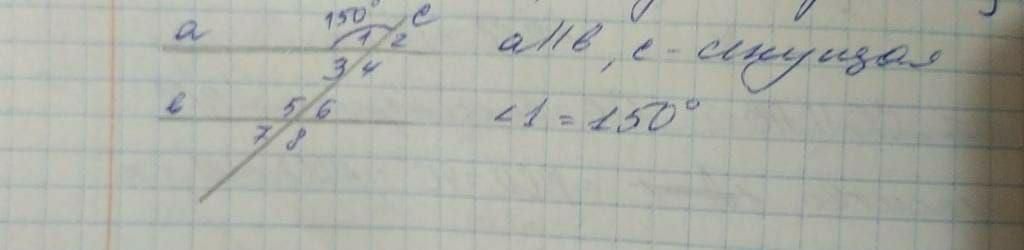 150° c
a 1 2 a||b, c - секущая
3 4
в 5 6 <1 = 150°
7 8